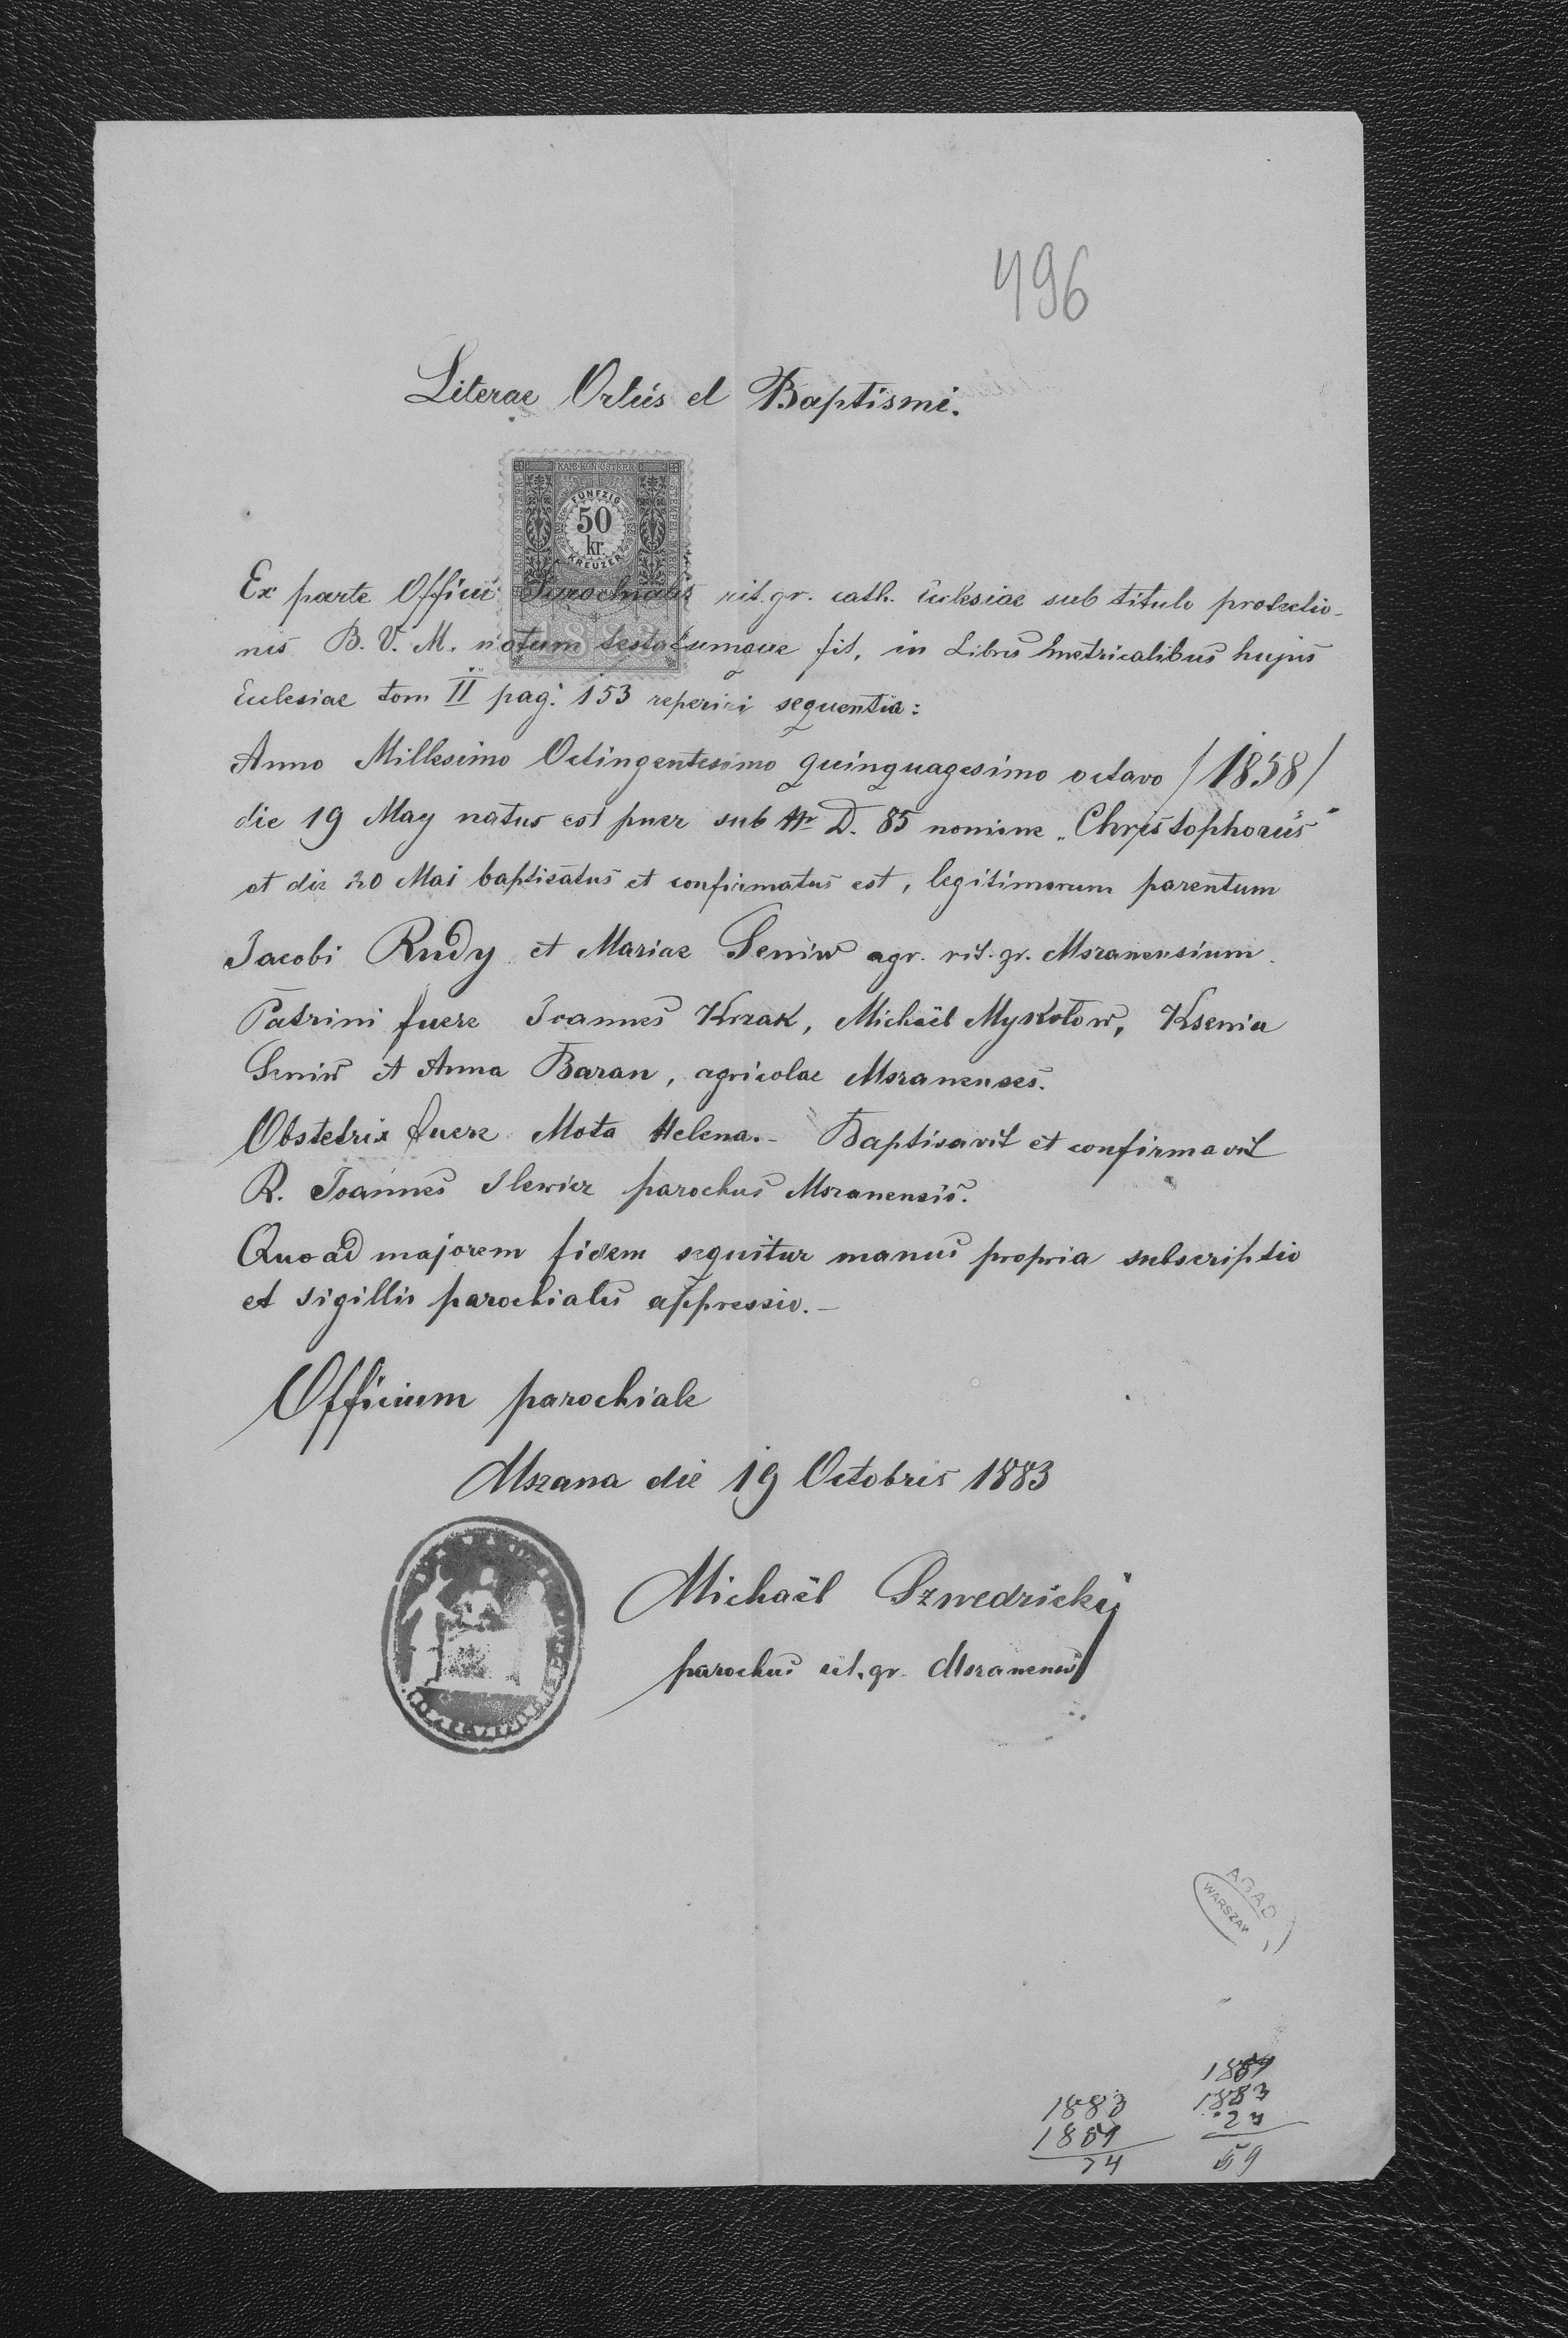 496
Literae Ortûs et Baptismi.
KAIS. KÖN. ÖSTERR.
FÜNFZIG
50
kr.
KREUZER
Ex parte Officii Parochialis rit. gr. cath. Ecclesiae sub titulo protectio-
nis B. V. M. notum testatumque fit, in Libris metricalibus hujus
Ecclesiae tom II pag. 153 reperiri sequentia:
Anno Millesimo Octingentesimo quinquagesimo octavo /1858/
die 19 May natus est puer sub Nr D. 85 nomine „Christophorus"
et die 20 Mai baptisatus et confirmatus est, legitimorum parentum
Jacobi Rudy et Mariae Seniw agr. rit. gr. Mszanensium.
Patrini fuere Joannes Kozak, Michaël Mykołow, Ksenia
Seniw et Anna Baran, agricolae Mszanenses.
Obstetrix fuere Mota Helena. – Baptisavit et confirmavit
R. Joannes Ilewicz parochus Mszanensis.
Quoad majorem fidem sequitur manus propria subscriptio
et sigillis parochialis appressio. –
Officium parochiale
Mszana die 19 Octobris 1883
Michaël Szwedzickij
parochus rit. gr. Mszanensis
AGAD
WARSZAW
1883
1859
24
1859
1883
23
59